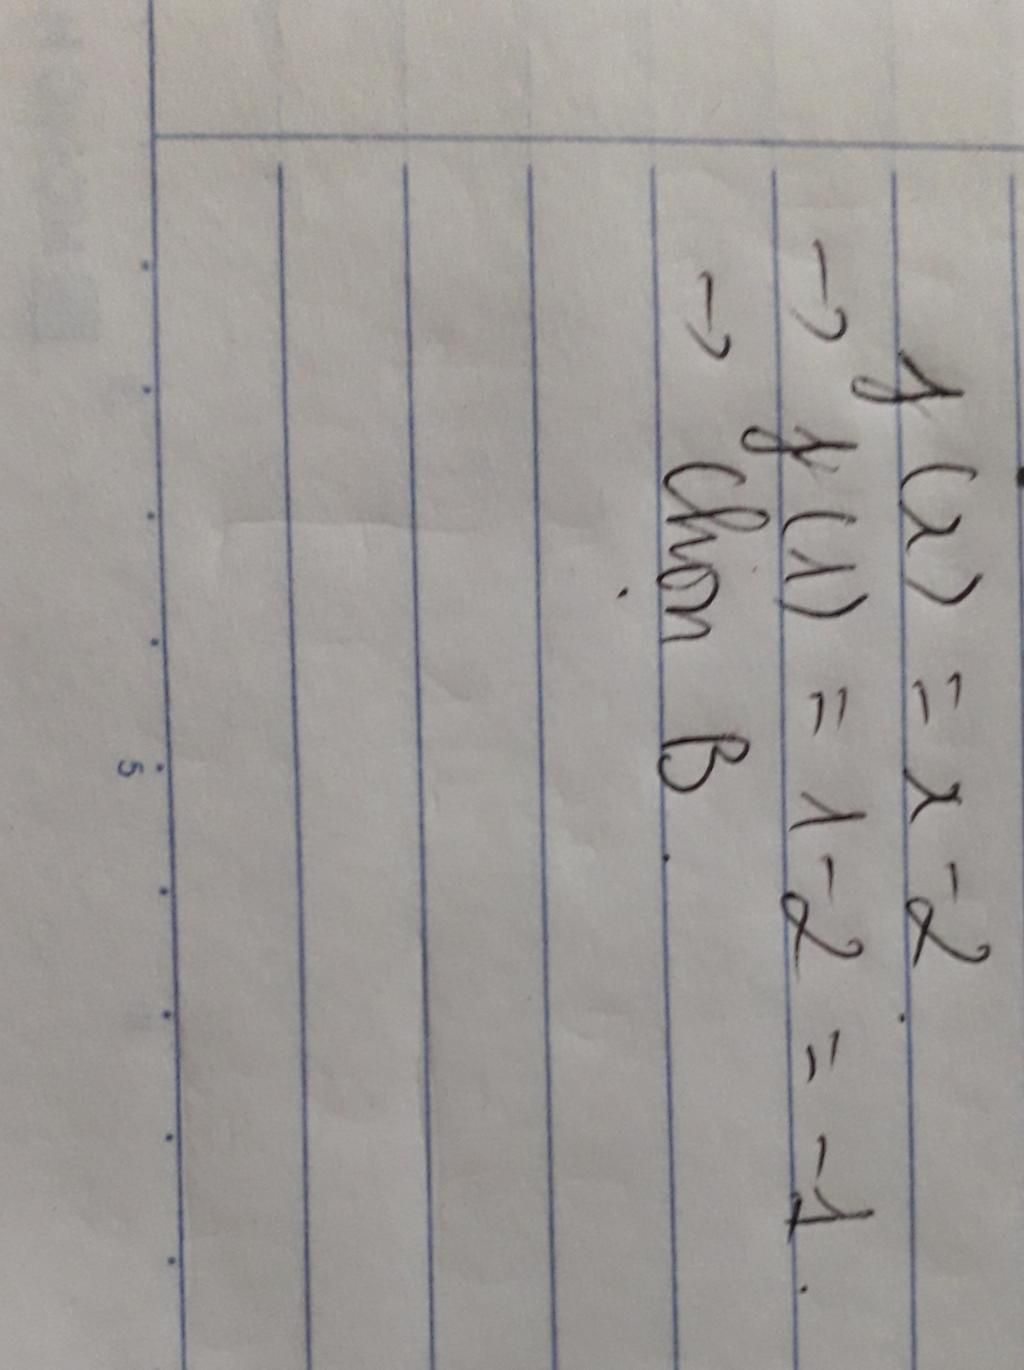 f(x) = x - 2.
→ f(1) = 1 - 2 = -1.
→ Chọn B.
5